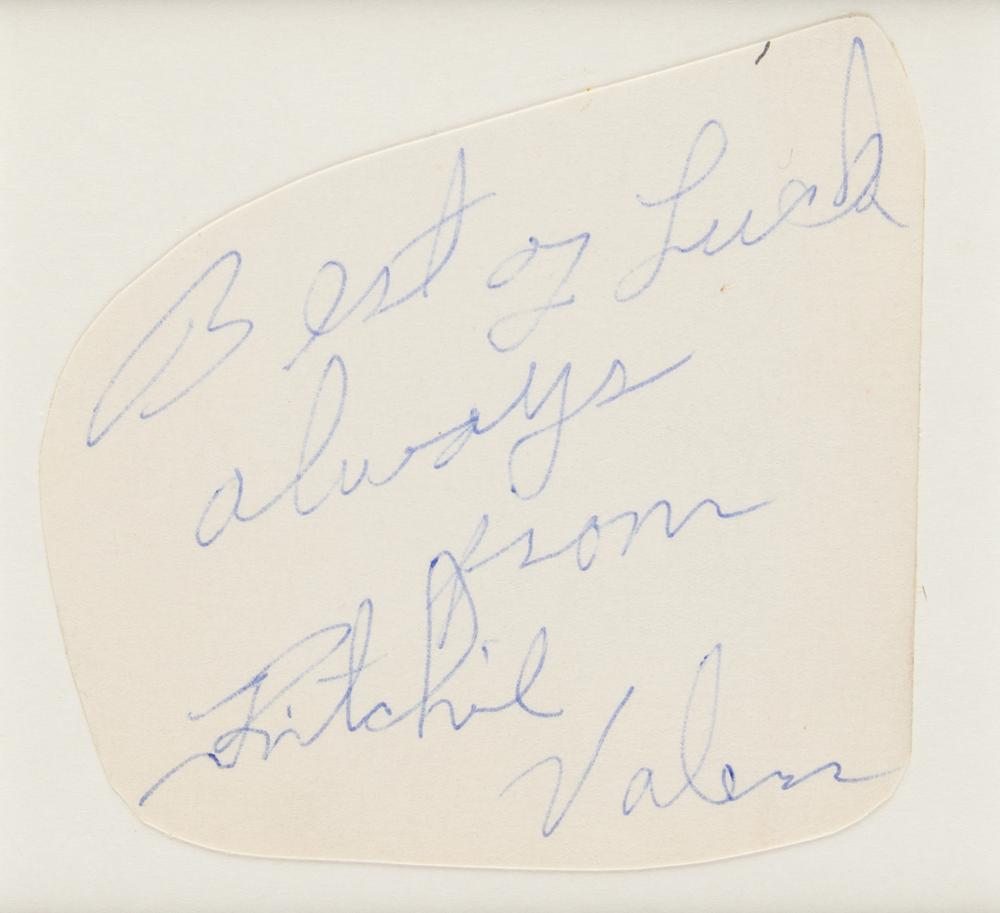 Best of Luck
always
from
Ritchie
Valens